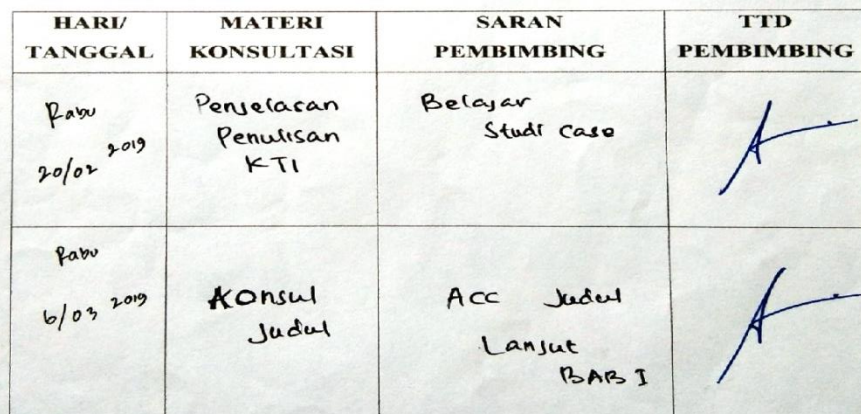 HARI/ TANGGAL
MATERI KONSULTASI
SARAN PEMBIMBING
TTD PEMBIMBING
Rabu
20/02 2019
Penjelasan
Penulisan
KTI
Belajar
Studi Case
Rabu
6/03 2019
Konsul
Judul
ACC Judul
Lanjut
BAB I